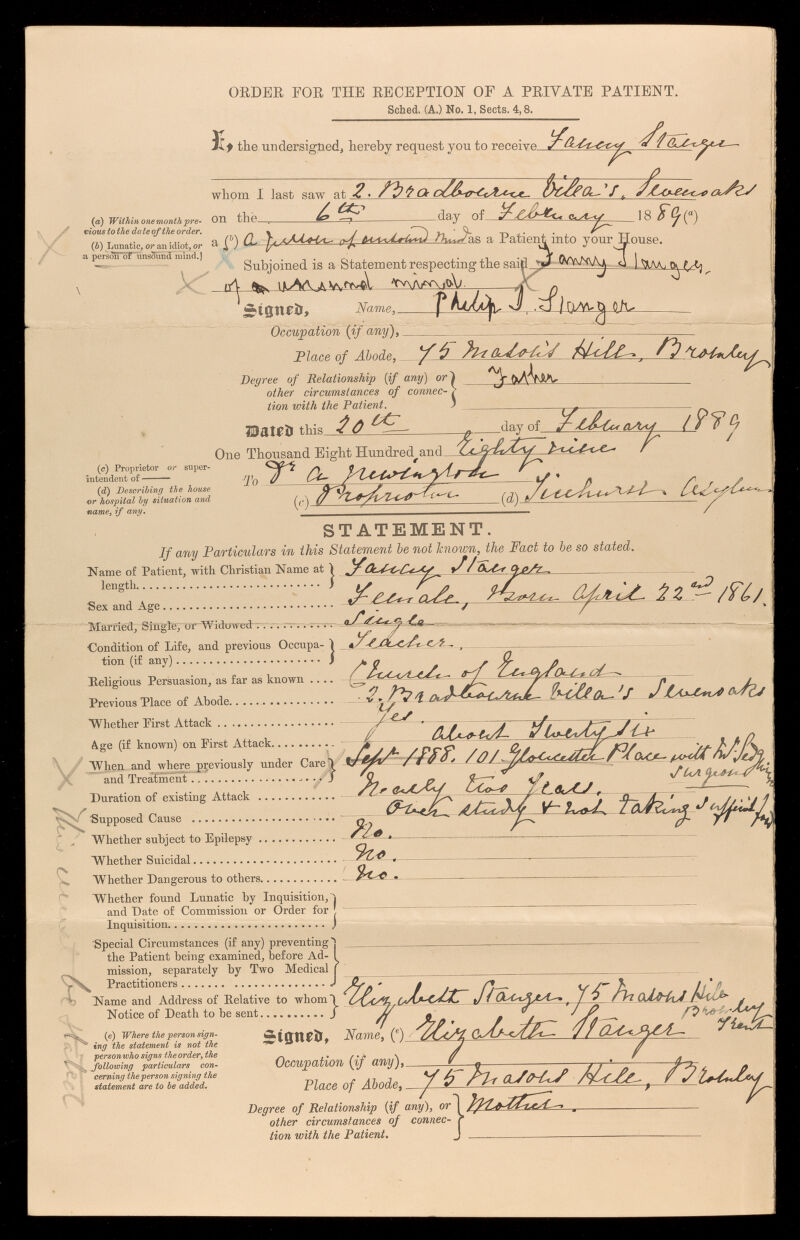 ORDER FOR THE RECEPTION OF A PRIVATE PATIENT.
Sched. (A.) No. 1, Sects. 4, 8.
I, the undersigned, hereby request you to receive Fanny Stanger
whom I last saw at 2. Bradbourne Villa's, Sevenoaks
on the 6th day of February 1889 (a)
(a) Within one month pre-
vious to the date of the order.
(b) Lunatic, or an idiot, or
a person of unsound mind.]
a (b) A person of unsound mind as a Patient into your House.
Subjoined is a Statement respecting the said Fanny Stanger,
of unsound mind.
Signed, Name, Philip J. Stanger
Occupation (if any),
Place of Abode, 75 Mason's Hill, Bromley
Degree of Relationship (if any) or
other circumstances of connec-
tion with the Patient.
Father
Dated this 20th day of February 1889
One Thousand Eight Hundred and Eighty nine
(c) Proprietor or super-
intendent of ——
(d) Describing the house
or hospital by situation and
name, if any.
To Dr A Newington
(c) Proprietor (d) Ticehurst Asylum
STATEMENT.
If any Particulars in this Statement be not known, the Fact to be so stated.
Name of Patient, with Christian Name at
length
Fanny Stanger
Sex and Age Female, Born April 22nd 1861.
Married, Single, or Widowed Single
Condition of Life, and previous Occupa-
tion (if any)
Teacher.
Religious Persuasion, as far as known Church of England
Previous Place of Abode 2. Bradbourne Villa's Sevenoaks
Whether First Attack Yes.
Age (if known) on First Attack About Twenty six
When and where previously under Care
and Treatment
Sept 1888. 101 Gloucester Place with Mr Sedgwick
Surgeon
Duration of existing Attack Nearly two Years.
Supposed Cause Over study & not taking sufficient food
Whether subject to Epilepsy No.
Whether Suicidal No.
Whether Dangerous to others No.
Whether found Lunatic by Inquisition,
and Date of Commission or Order for
Inquisition
Special Circumstances (if any) preventing
the Patient being examined, before Ad-
mission, separately by Two Medical
Practitioners
Name and Address of Relative to whom
Notice of Death to be sent
Elizabeth Stanger, 75 Masons Hill
Bromley
Kent
(e) Where the person sign-
ing the statement is not the
person who signs the order, the
following particulars con-
cerning the person signing the
statement are to be added.
Signed, Name, (e) Elizabeth Stanger
Occupation (if any),
Place of Abode, 75 Masons Hill, Bromley
Degree of Relationship (if any), or
other circumstances of connec-
tion with the Patient.
Mother.
This must be stated